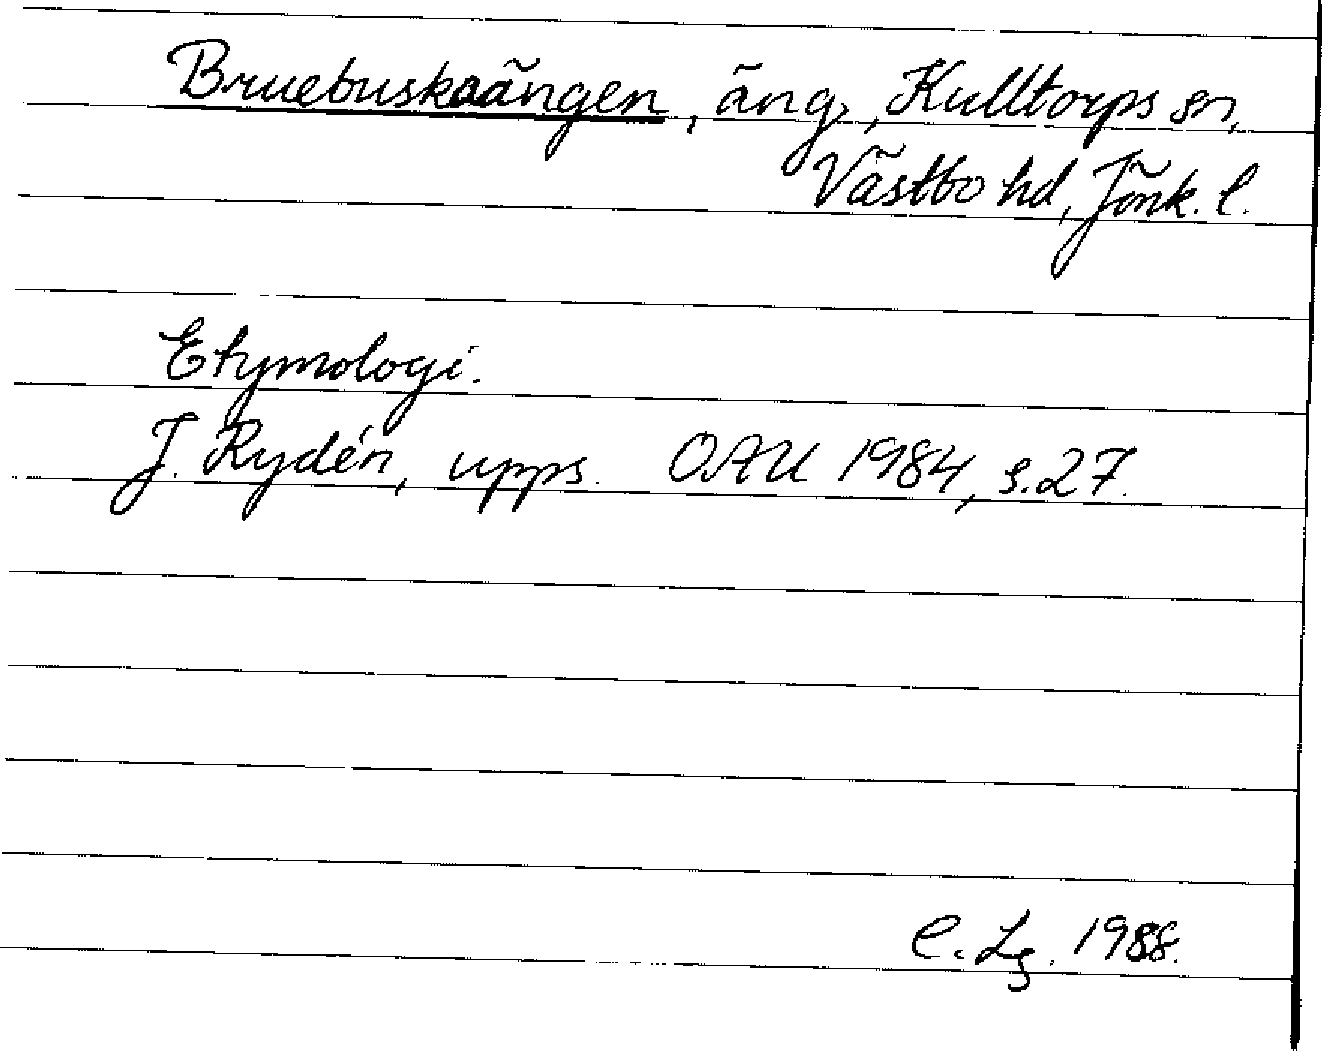 Bruebuskaängen, äng, Kulltorps sn,
Västbo hd, Jönk. l.
Etymologi.
J. Rydén, upps. OAU 1984, s.27.
C. Lg. 1988.